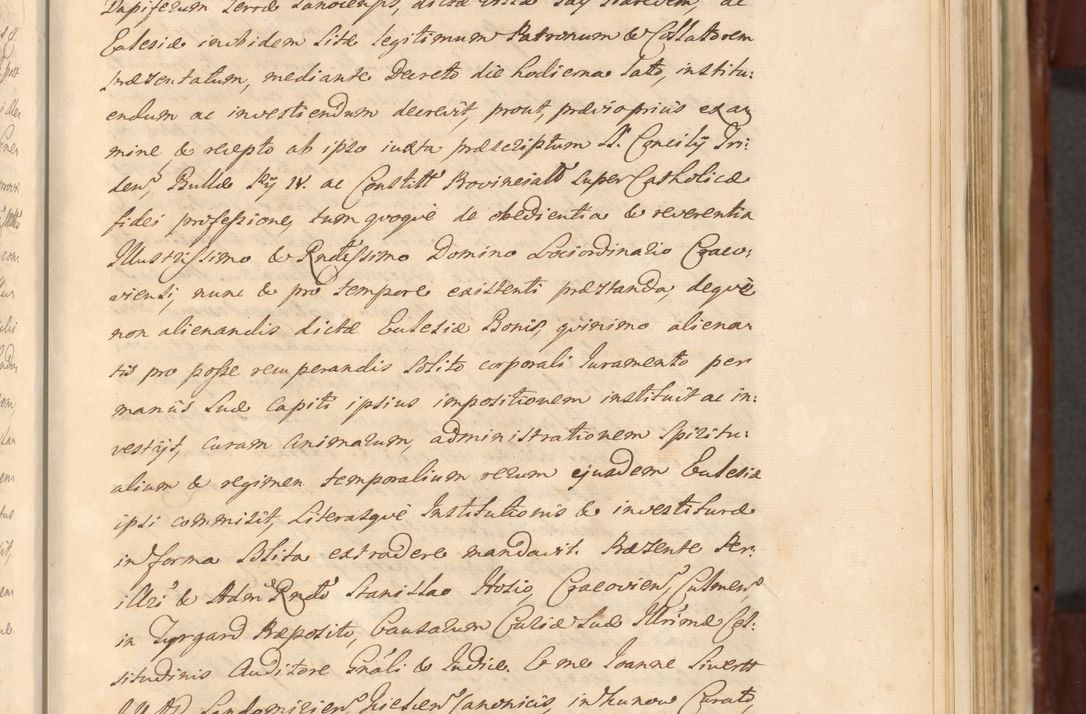 Dapiferum Terræ Sanocensis, dictæ
Ecclesiæ in ibidem Sitæ legitimum Patronum & Collatorem
præsentatum, mediante Decreto die hodierna lato, institu:
endum ac investiendum decrevit, prout, prævio prius exa
mine & recepto ab ipso iuxta præscriptum SS. Concilÿ Tri:
den. Bullæ Pÿ IV. ac Constitt. Provincial. super Catholicæ
fidei professione, tum quoquè de obedientia & reverentia
Illustrissimo & Rndissimo Domino Lociordinario Craco:
viensi, nunc & pro tempore existenti præstanda, dequè
non alienandis dictæ Ecclesiæ Bonis, quinimo aliena
tis pro posse recuperandis solito corporali Iuramento per
manûs suæ capiti ipsius impositionem instituit ac in:
vestÿt, curam animarum, administrationem spiritu:
alium & regimen temporalium rerum ejusdem Ecclesiæ
ipsi commisit, Literasquè Institutionis & investituræ
in forma Solita extradere mandavit. Præsente Per:
illri & Adm Rndo Stanislao Hosio, Cracovien, Culmen,
in Tyrgard Præposito, Causarum Curiæ Suæ Illrimæ Cel:
situdinis Auditore Gnáli & Iudice. & me Ioanne Siwertt
Sandomirien, Canonicis, in Curato,